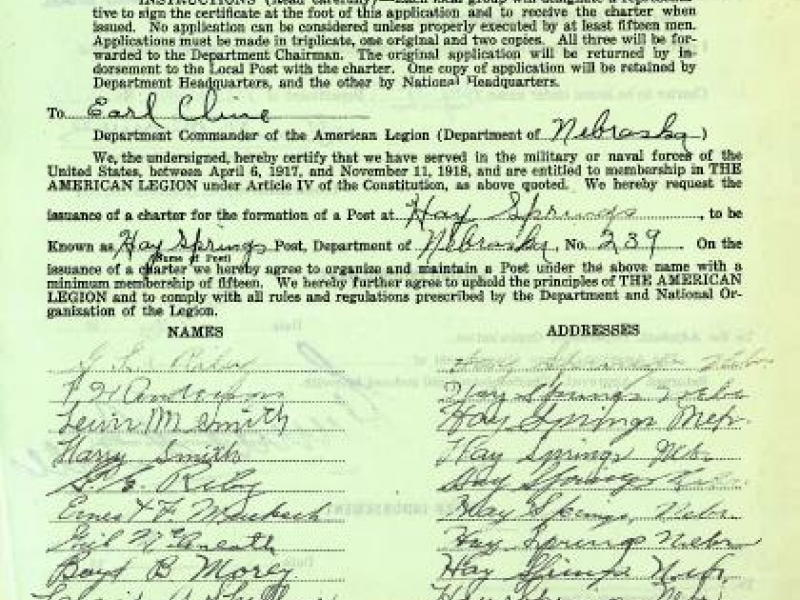 INSTRUCTIONS (Read Carefully)—Each local group will designate a representa-
tive to sign the certificate at the foot of this application and to receive the charter when
issued. No application can be considered unless properly executed by at least fifteen men.
Applications must be made in triplicate, one original and two copies. All three will be for-
warded to the Department Chairman. The original application will be returned by in-
dorsement to the Local Post with the charter. One copy of application will be retained by
Department Headquarters, and the other by National Headquarters.
To Earl Cline
Department Commander of the American Legion (Department of Nebraska)
We, the undersigned, hereby certify that we have served in the military or naval forces of the
United States, between April 6, 1917, and November 11, 1918, and are entitled to membership in THE
AMERICAN LEGION under Article IV of the Constitution, as above quoted. We hereby request the
issuance of a charter for the formation of a Post at Hay Springs, to be
Known as Hay Springs Post, Department of Nebraska, No. 239 On the
(Name of Post)
issuance of a charter we hereby agree to organize and maintain a Post under the above name with a
minimum membership of fifteen. We hereby further agree to uphold the principles of THE AMERICAN
LEGION and to comply with all rules and regulations prescribed by the Department and National Or-
ganization of the Legion.
NAMES ADDRESSES
Riley Hay Springs Nebr
Anderson Hay Springs Nebr
Lewis M Smith Hay Springs Nebr.
Harry Smith Hay Springs Neb.
Riley Hay Springs Nebr.
Ernest F. Hay Springs, Nebr.
Hay Springs Nebr
Boyd B Morey Hay Springs Nebr.
Hay Springs Nebr.